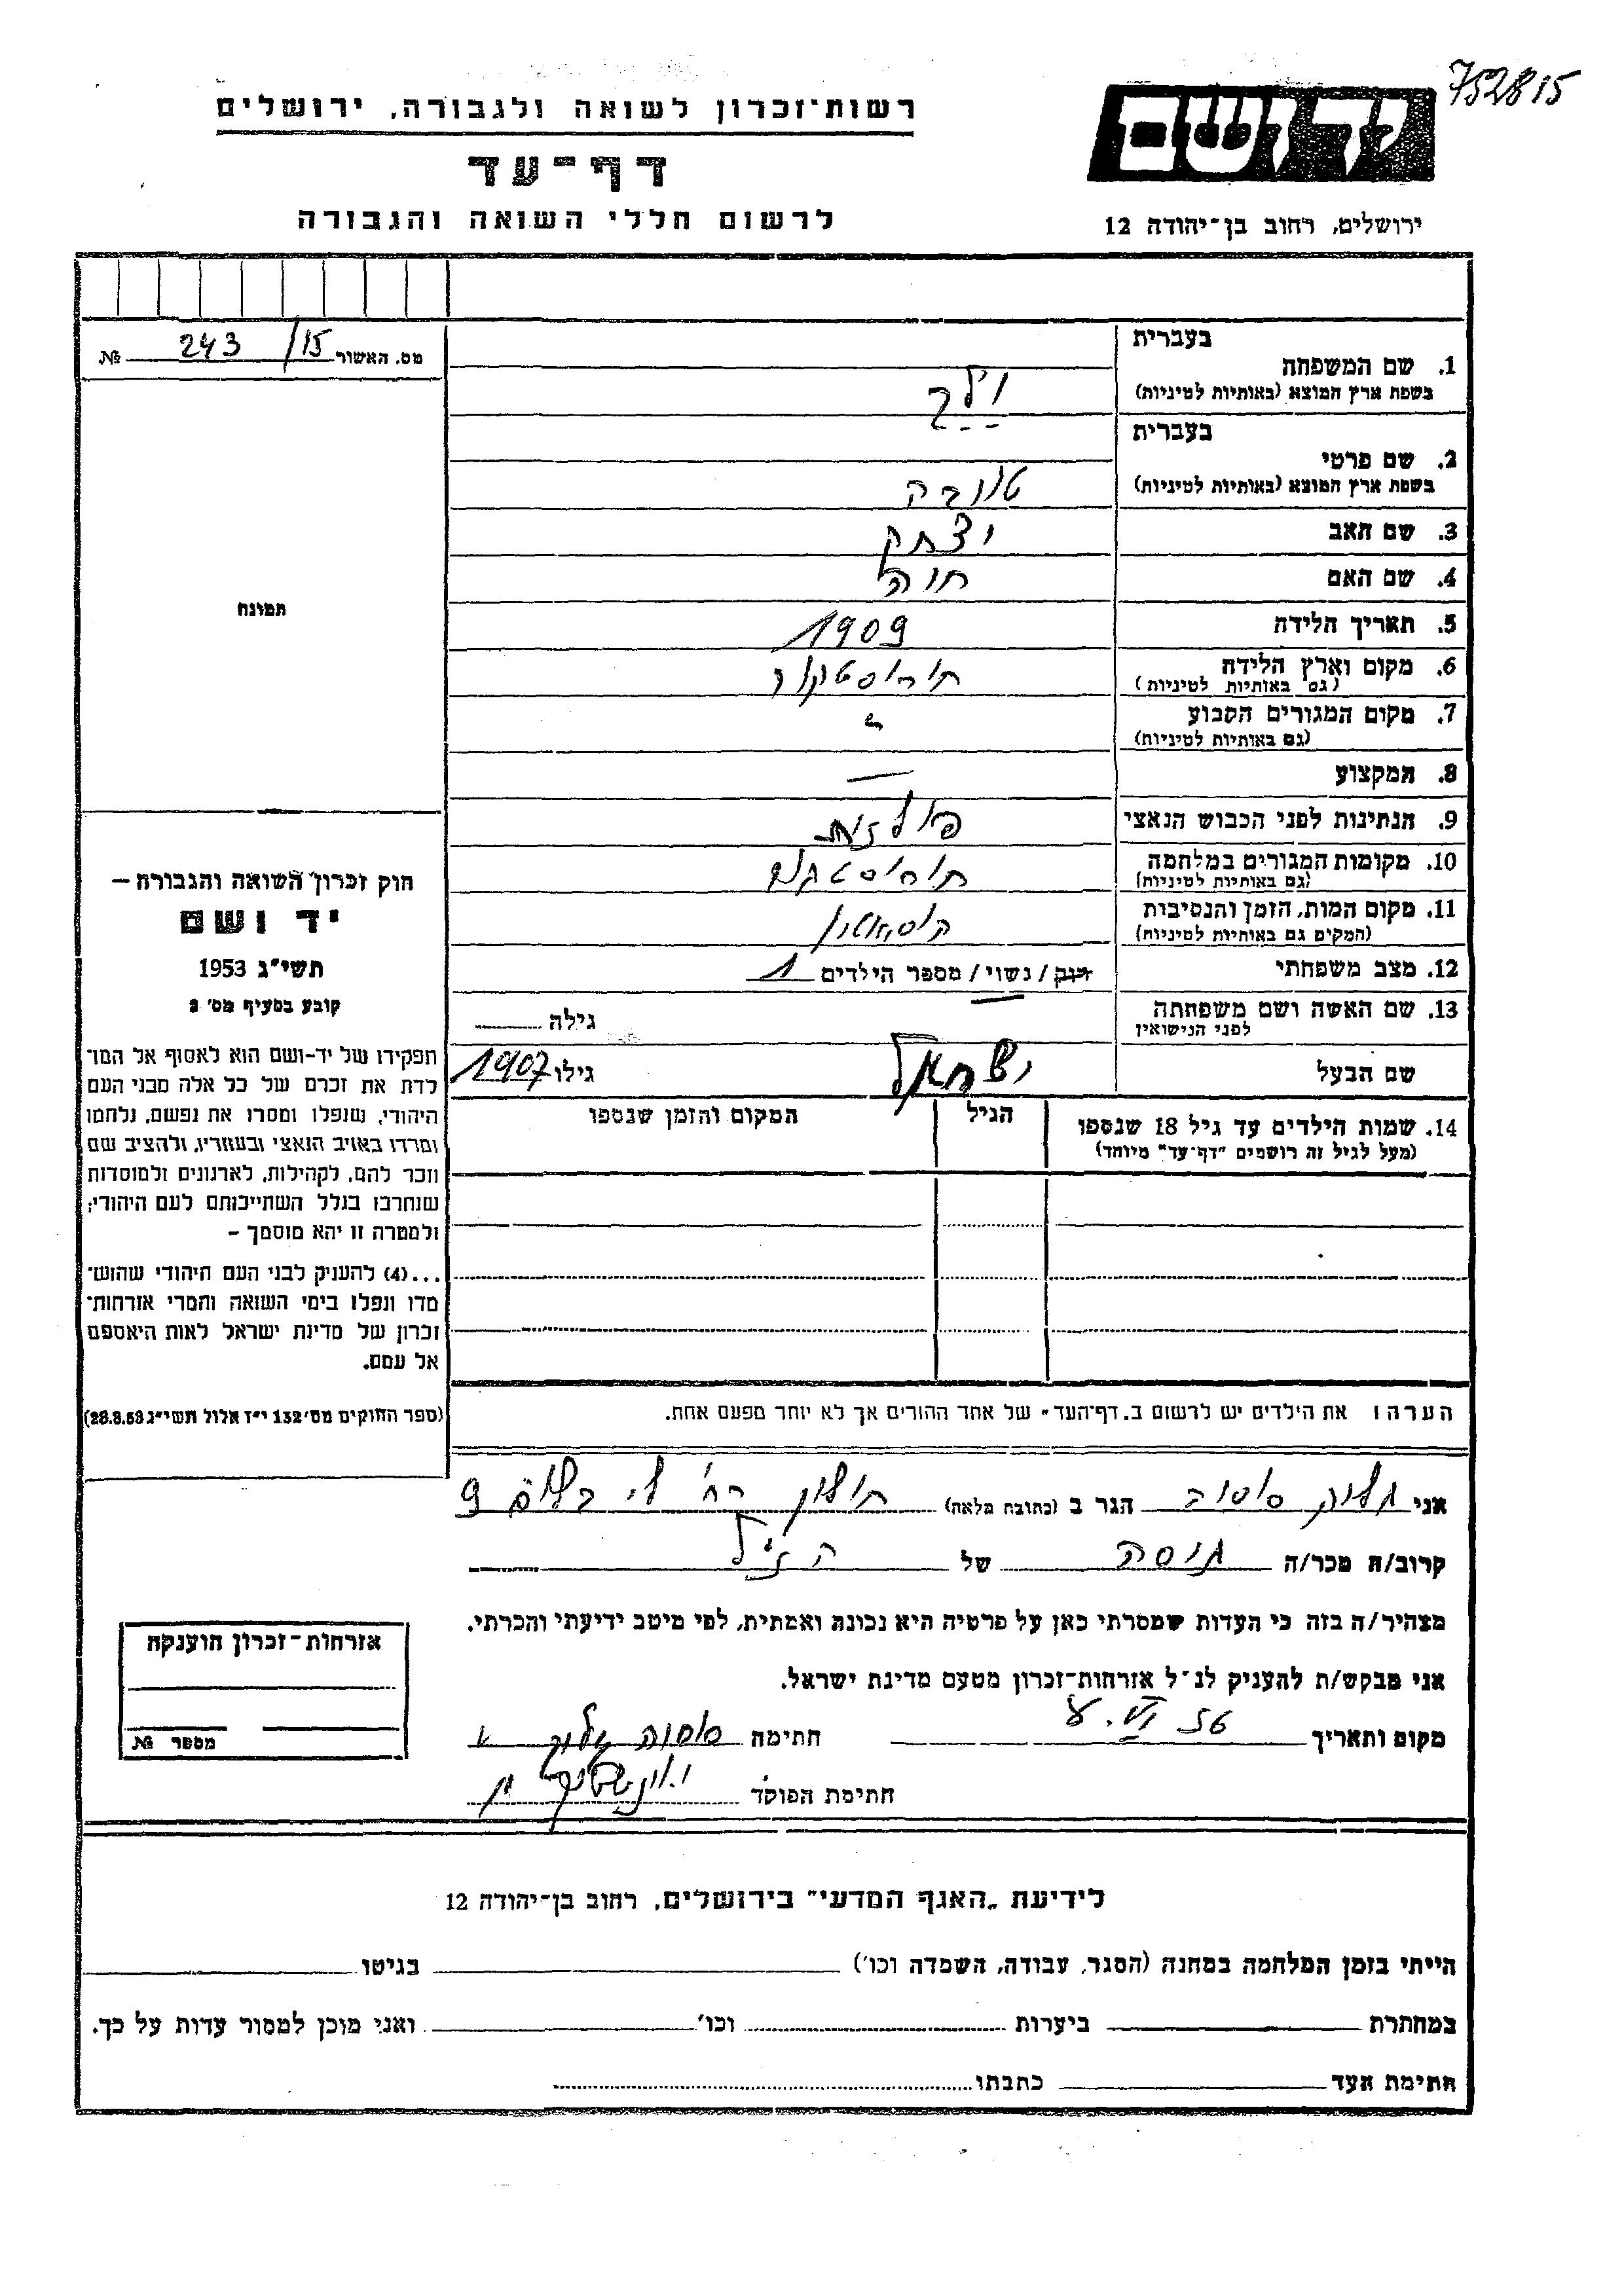 752815
רשות־זכרון לשואה ולגבורה, ירושלים
יד ושם
דף־עד
לרשום חללי השואה והגבורה
ירושלים, רחוב בן־יהודה 12
מס. האשור 15/ 243 №
בעברית
1. שם המשפחה
בשפת ארץ המוצא (באותיות לטיניות)
וילך
בעברית
2. שם פרטי
בשפת ארץ המוצא (באותיות לטיניות)
טובה
3. שם האב יצחק
4. שם האם חוה
5. תאריך הלידה 1909
6. מקום וארץ הלידה
(גם באותיות לטיניות)
7. מקום המגורים הקבוע
(גם באותיות לטיניות)
8. המקצוע —
9. הנתינות לפני הכבוש הנאצי פולנית
10. מקומות המגורים במלחמה
(גם באותיות לטיניות)
11. מקום המות, הזמן והנסיבות
(המקום גם באותיות לטיניות)
12. מצב משפחתי רווק / נשוי / מספר הילדים 1
13. שם האשה ושם משפחתה
לפני הנישואין
גילה
שם הבעל ישראל גילו 1907
14. שמות הילדים עד גיל 18 שנספו
(מעל לגיל זה רושמים "דף־עד" מיוחד)
הגיל
המקום והזמן שנספו
הערה: את הילדים יש לרשום ב„דף־העד" של אחד ההורים אך לא יותר מפעם אחת.
תמונה
חוק זכרון השואה והגבורה —
יד ושם
תשי"ג 1953
קובע בסעיף מס' 2
תפקידו של יד־ושם הוא לאסוף אל המו־
לדת את זכרם של כל אלה מבני העם
היהודי, שנפלו ומסרו את נפשם, נלחמו
ומרדו באויב הנאצי ובעוזריו, ולהציב שם
וזכר להם, לקהילות, לארגונים ולמוסדות
שנחרבו בגלל השתייכותם לעם היהודי;
ולמטרה זו יהא מוסמך —
...(4) להעניק לבני העם היהודי שהוש־
מדו ונפלו בימי השואה והמרי אזרחות־
זכרון של מדינת ישראל לאות היאספם
אל עמם.
(ספר החוקים מס' 132 י"ז אלול תשי"ג 28.8.53)
אני הגר ב (כתובת מלאה) חולון רח' 9
קרוב/ה מכר/ה גיסה של הנ"ל
מצהיר/ה בזה כי העדות שמסרתי כאן על פרטיה היא נכונה ואמתית, לפי מיטב ידיעתי והכרתי.
אני מבקש/ת להעניק לנ"ל אזרחות־זכרון מטעם מדינת ישראל.
מקום ותאריך חתימה
חתימת הפוקד
אזרחות־זכרון הוענקה
מספר №
לידיעת „האגף המדעי" בירושלים, רחוב בן־יהודה 12
הייתי בזמן המלחמה במחנה (הסגר, עבודה, השמדה וכו') בגיטו
במחתרת ביערות וכו' ואני מוכן למסור עדות על כך.
חתימת העד כתבתו